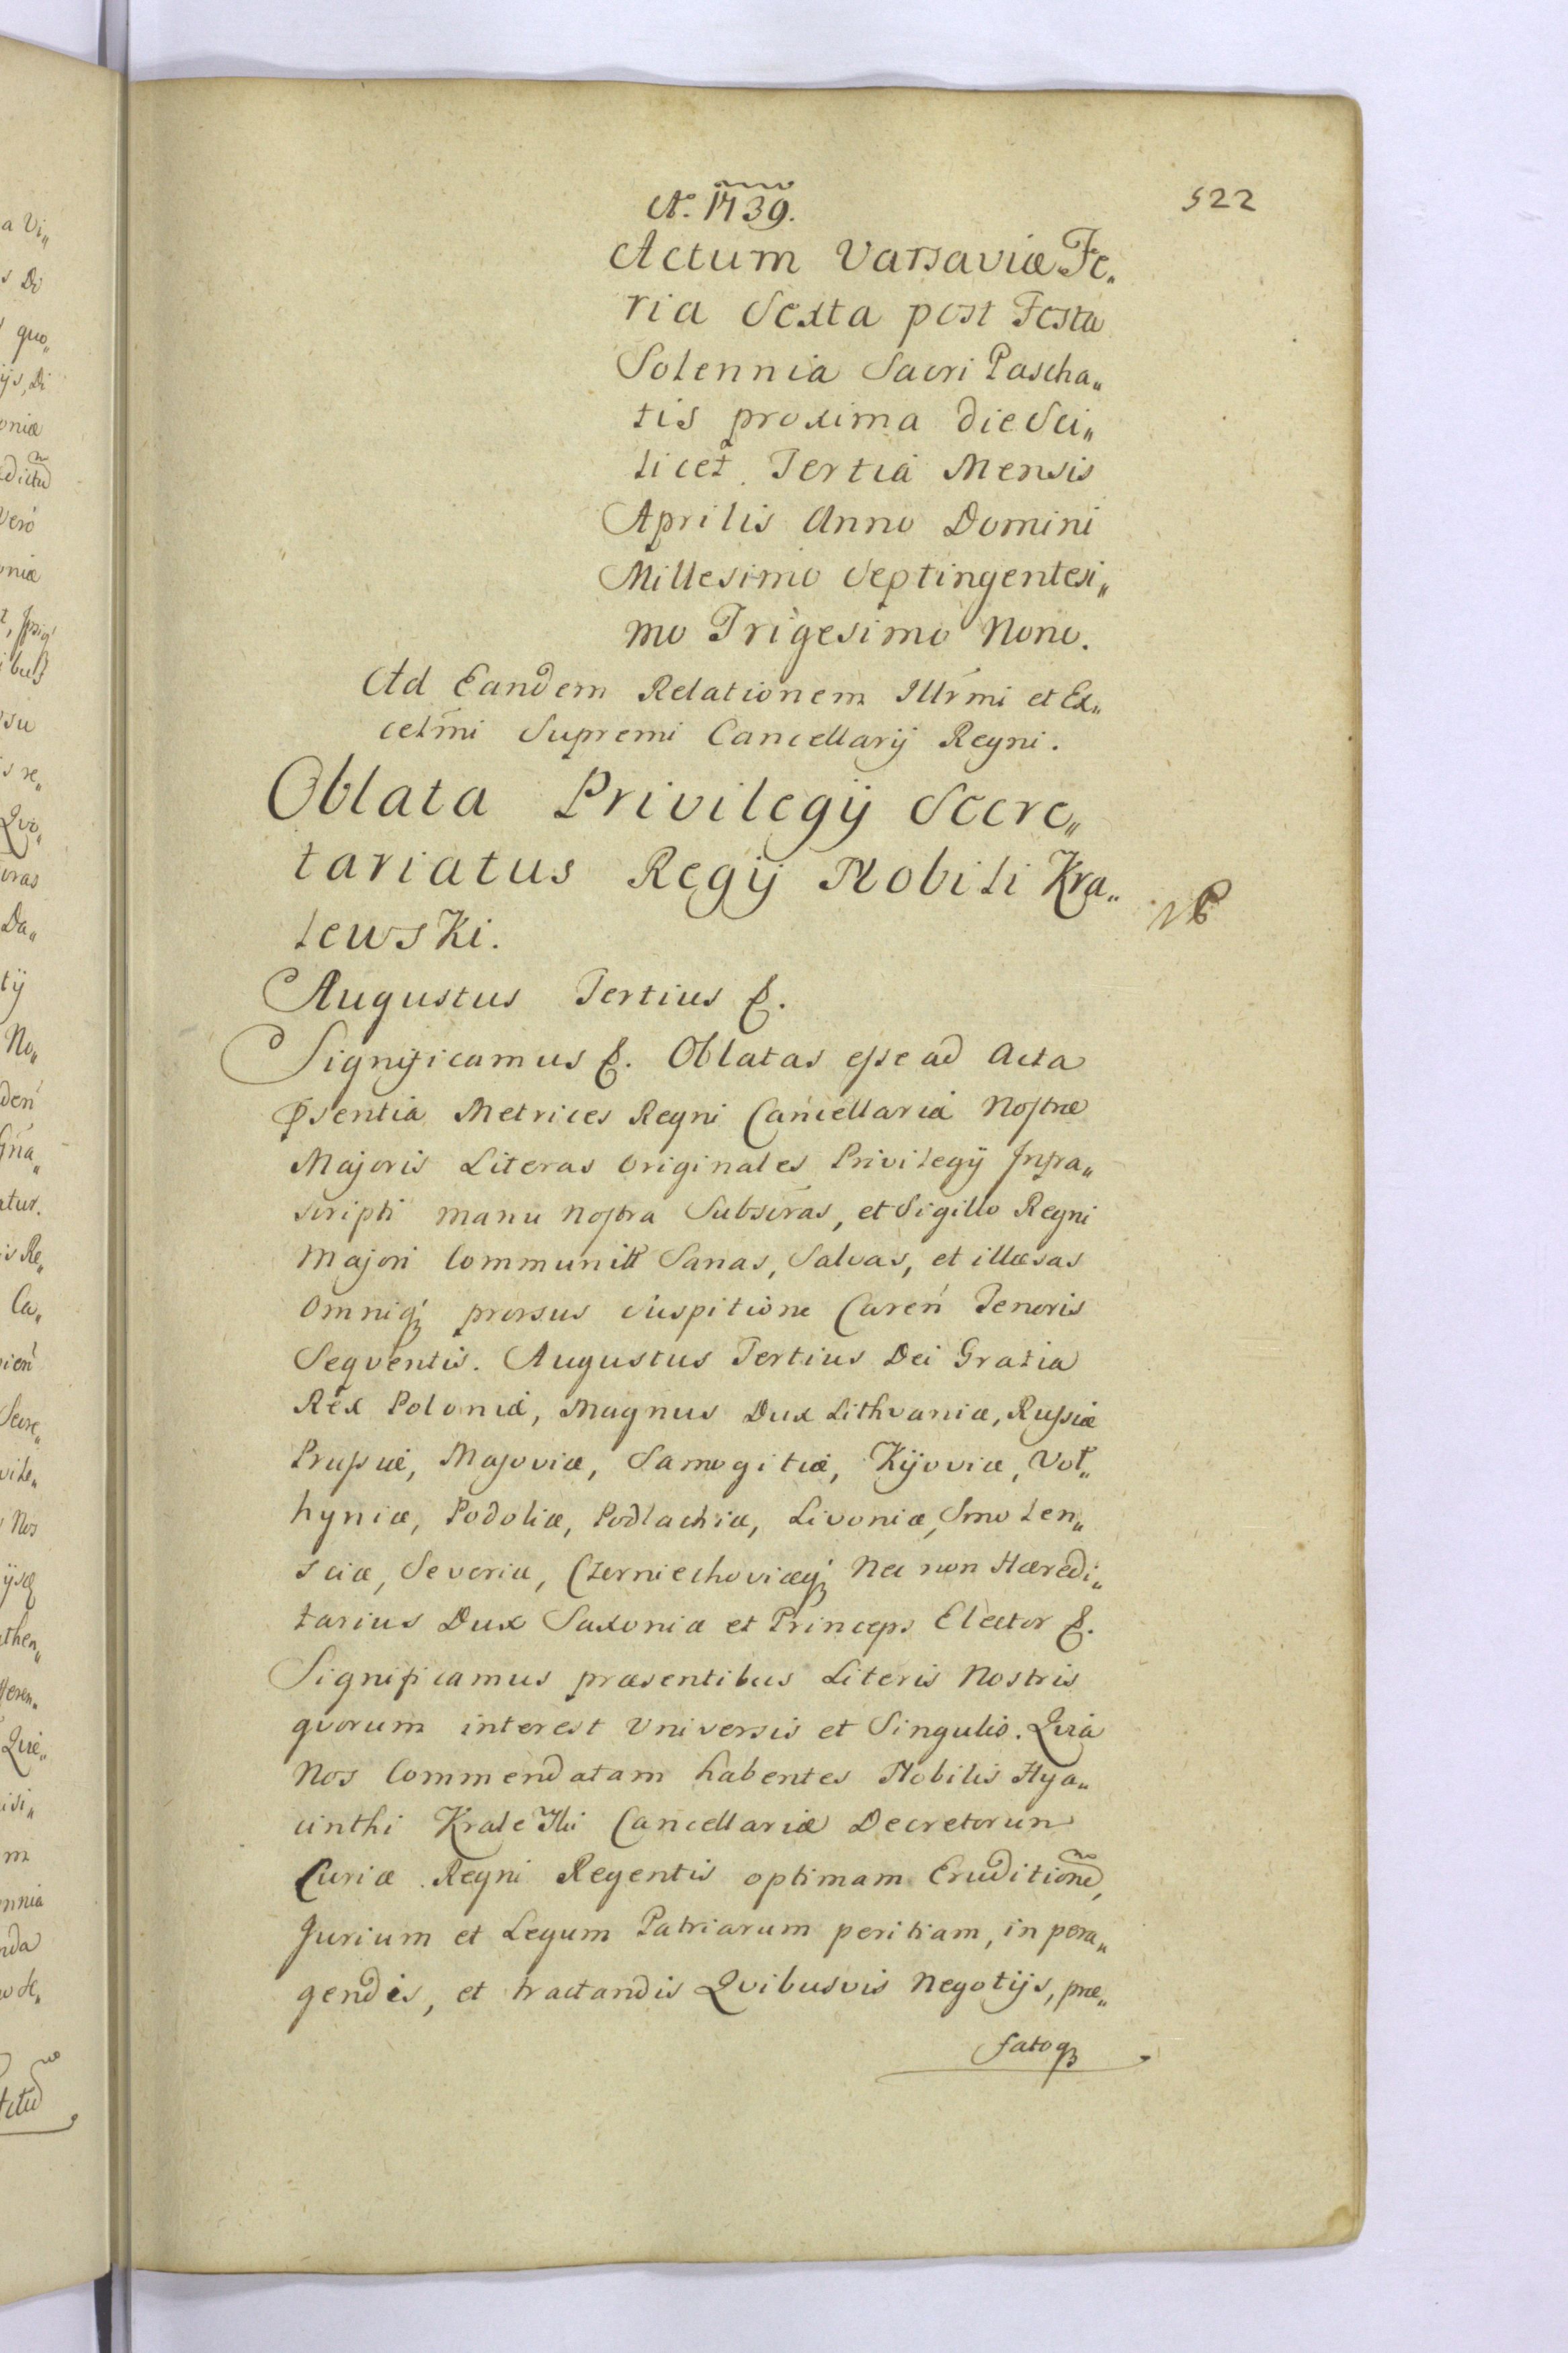 522
Aº. 1739.
Actum Varsaviæ Fe„
ria Sexta post Festa
Solennia Sacri Pascha„
tis proxima die Sci„
licet Tertia Mensis
Aprilis Anno Domini
Millesimo Septingentesi„
mo Trigesimo Nono.
Ad Eandem Relationem Illrmi et Ex„
celmi Supremi Cancellarij Regni.
Oblata Privilegij Secre„
tariatus Regij Nobili Kra„
lewski.
Augustus Tertius &.
Significamus &. Oblatas esse ad Acta
Psentia Metrices Regni Cancellariæ Nostræ
Majoris Literas Originales Privilegij Infra„
scripti manu nostra Subscras, et Sigillo Regni
Majori Communitt Sanas, Salvas, et illæsas
omniq; prorsus Suspitione Caren Tenoris
Seqventis. Augustus Tertius Dei Gratia
Rex Poloniæ, Magnus Dux Lithvaniæ, Russiæ
Prussiæ, Masoviæ, Samogitiæ, Kijoviæ, Vol„
hyniæ, Podoliæ, Podlachiæ, Livoniæ, Smolen„
sciæ, Severiæ, Czerniechoviæq; Nec non Hæredi„
tarius Dux Saxoniæ et Princeps Elector &.
Significamus præsentibus Literis Nostris
qvorum interest Universis et Singulis. Qvia
Nos Commendatam habentes Nobilis Hya„
cinthi Kralewski Cancellariæ Decretorum
Curiæ Regni Regentis optimam Eruditione,
Jurium et Legum Patriarum peritiam, in pera„
gendis, et tractandis Qvibusvis Negotijs, præ„
fatoq;
a Vi„
s Di
quo„
ijs, Di
oniæ
Vero
niæ
su
s re„
Qvo„
Da„
tij
No„
den
atur.
is Re„
Ca„
Secre„
Nos
then„
m
nda